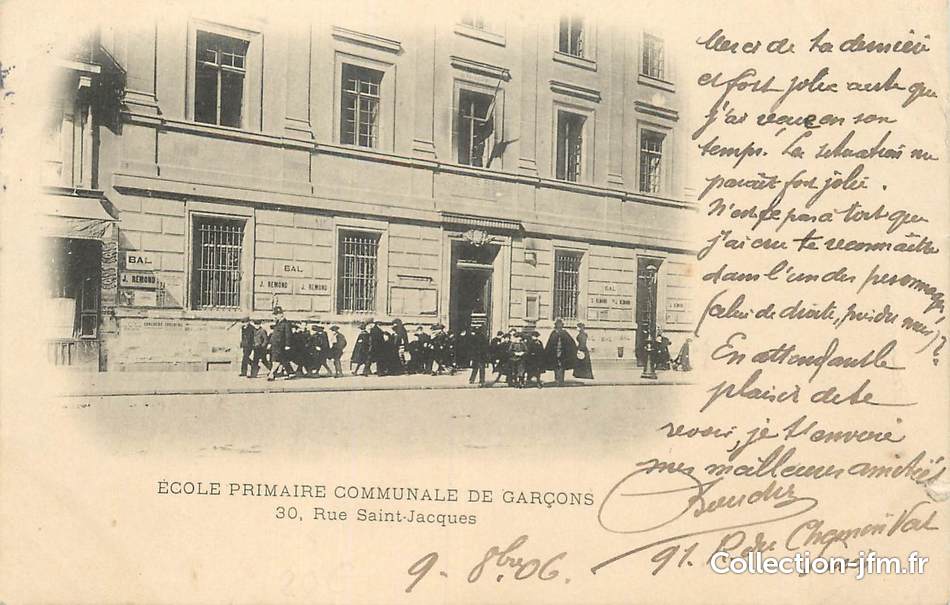 Merci de ta dernière
et fort jolie carte que
j'ai reçue en son
temps. La situation me
paraît fort jolie.
N'est-ce pas à tort que
j'ai cru te reconnaître
dans l'un des personnages
(celui de droite, près du mur)?
En attendant le
plaisir de te
revoir, je t'envoie
mes meilleures amitiés
91. R. du Chemin Vert
9 - 8bre 06.
ÉCOLE PRIMAIRE COMMUNALE DE GARÇONS
30, Rue Saint-Jacques
BAL
J. REMOND
BAL
J. REMOND J. REMOND
BAL
BAL
Collection-jfm.fr